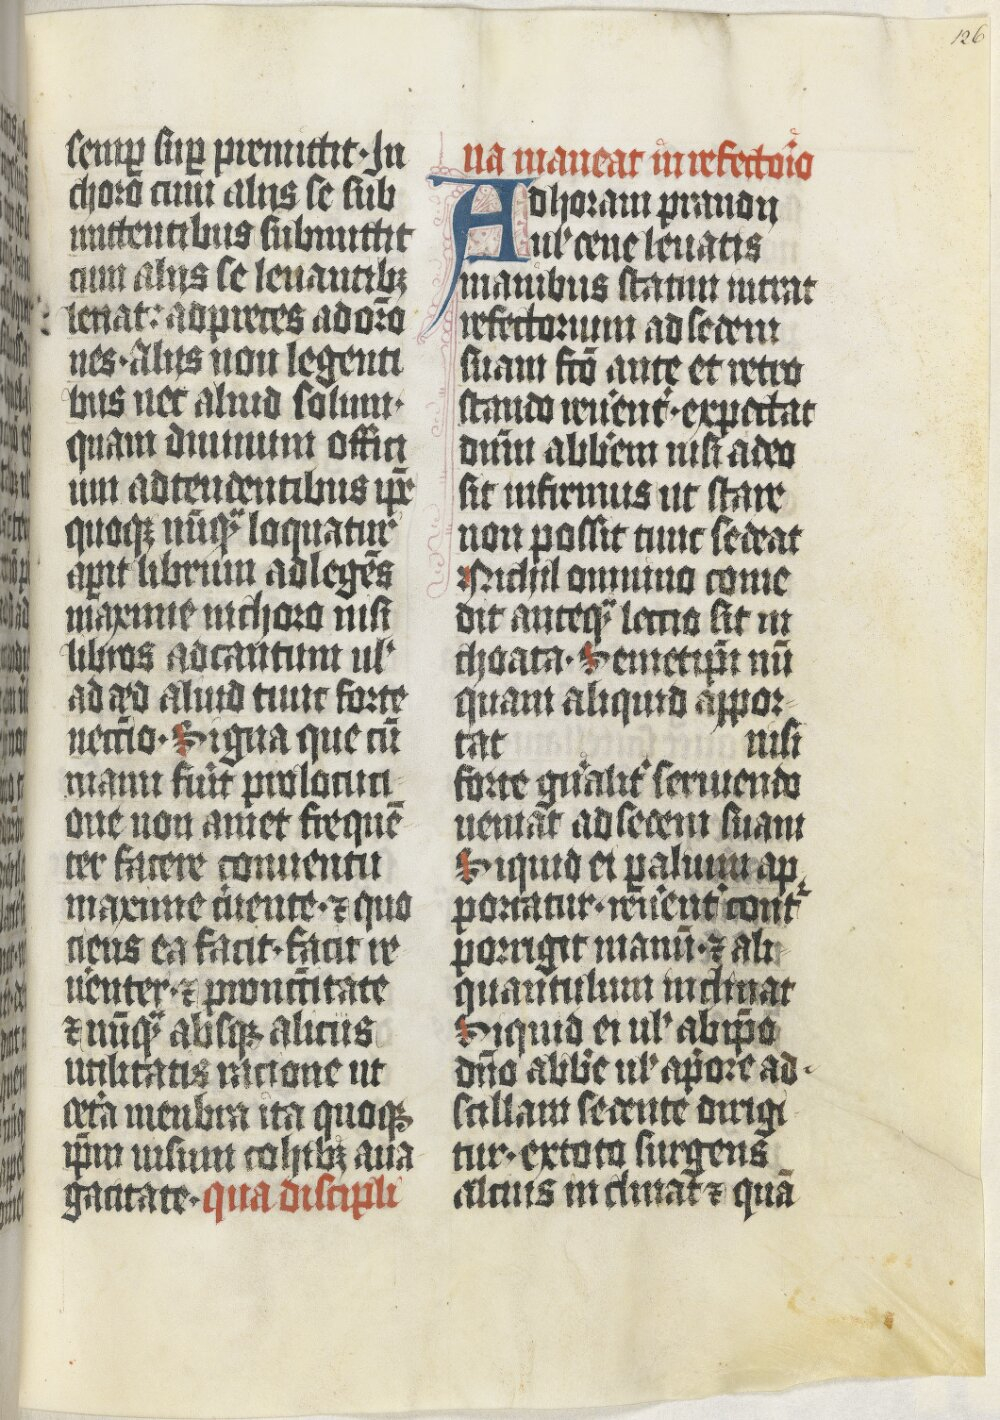 126
semꝑ suꝑ p̄rmittit· In
choro cum aliis se sub
mittentibus submittit
cum aliis se leuantibꝫ
leuat: ad preces ad or̄o
nes· Aliis non legenti
bus nec aliud solum·
quam diuinum offici
um adtendentibus ip̄e
quoqꝫ nūqᵃ loquatur
apit librum ad legēs
maxime in choro nisi
libros ad cantum ul'
ad qd aliud tunc forte
necc̄io· Signa que cū
manu fiūt pro locuti
one non amet frequē
ter facere conuentu
maxime cūente· ⁊ quo
ciens ea facit· facit re
uēnter· ⁊ pro nēcc̄itate
⁊ nūqᵃ absqꝫ alicuis
utilitatis racione ut
cet̄a menbra ita quoqꝫ
ip̄m uisum cohibꝫ a ua
gacitate· qua discipli
na maneat in refectorio
Ad horam prandii
ul' cene leuatis
manibus statim intrat
refectorium ad sedem
suam sc̄o ante et retro
stando reūent̄· expectat
dn̄m abb̄em nisi adeo
sit infirmus ut stare
non possit tunc sedeat
Nichil omnino come
dit anteqᵃ lectio sit in
choata· Semetip̄m nū
quam aliquid appor-
tat nisi
forte gn̄alit̄ seruiendo
ueniāt ad sedem suam
Siquid ei ꝑ alium ap
portatur· reūent̄ cont̄
porrigit manū· ⁊ ali-
quantulum inclinat
Siquid ei ul' ab ip̄o
dn̄o abb̄e ul' a p̄ore ad·
scillam sedente dirigi
tur· ex toto surgens
alcius inclinat ⁊ quā